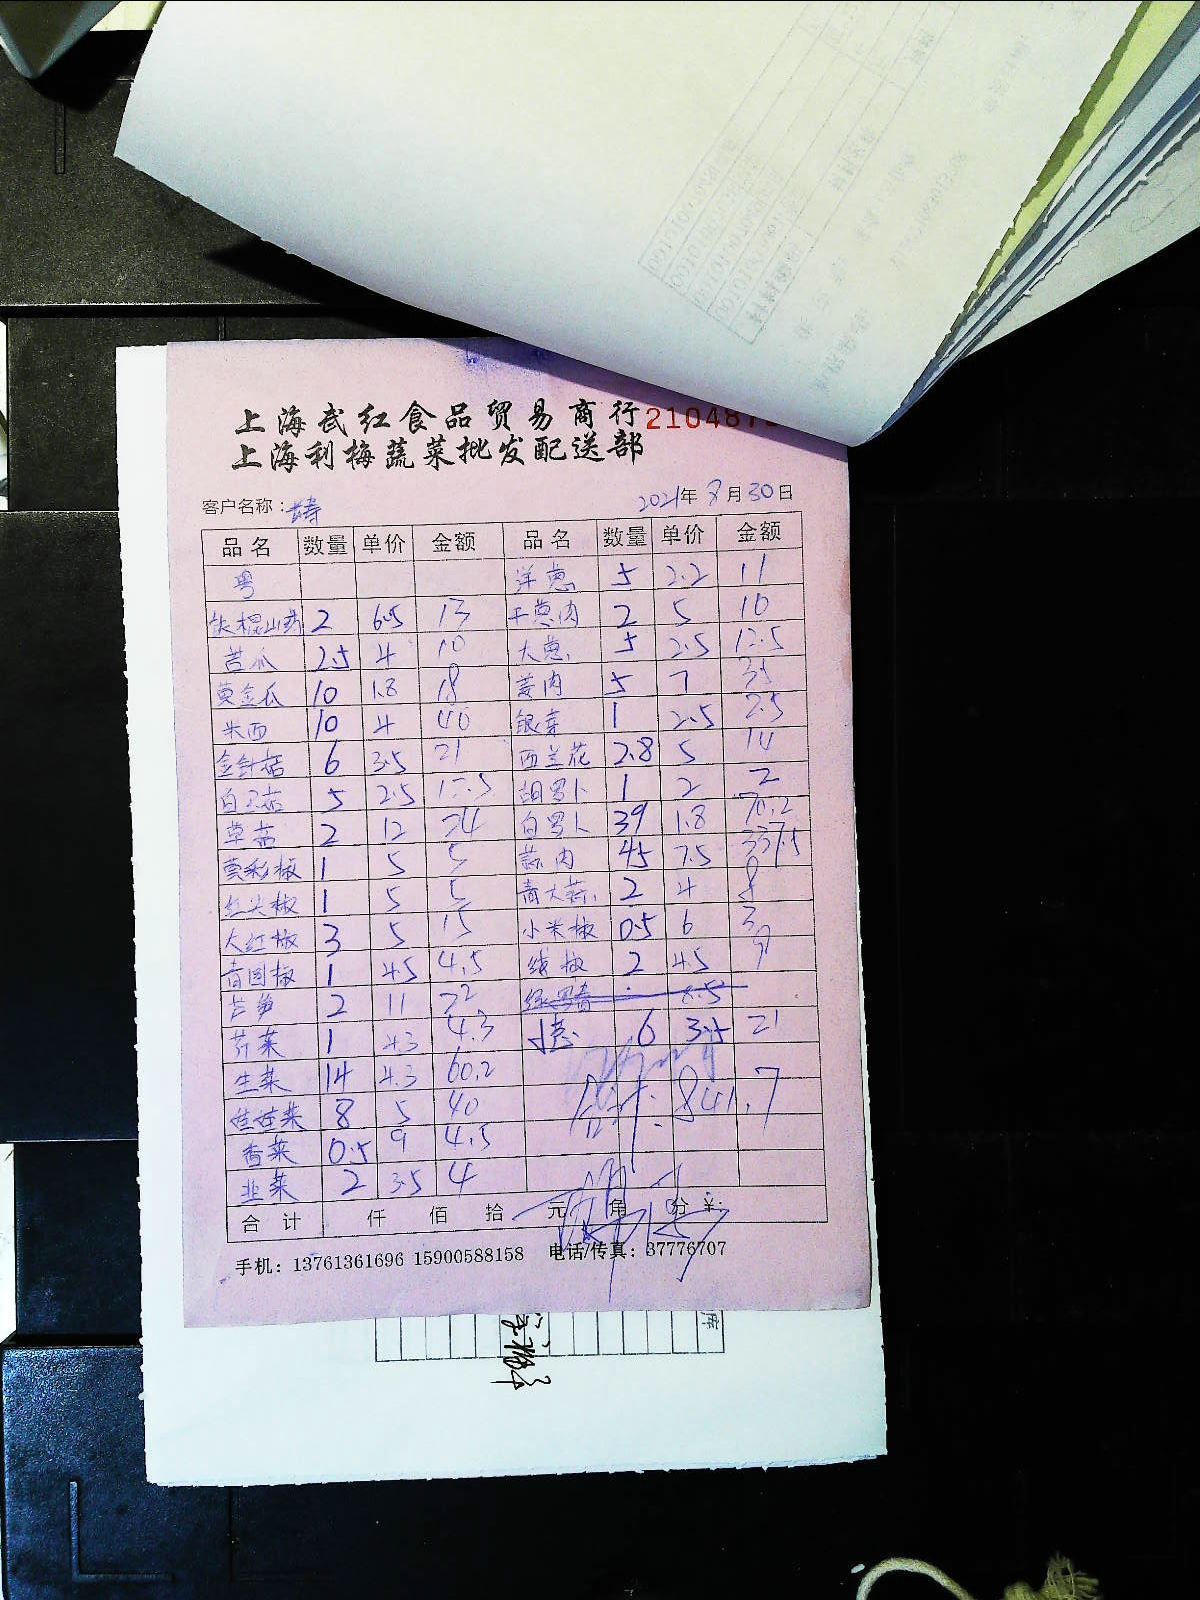 上海武红食品贸易商行 210487
上海利梅蔬菜批发配送部
客户名称： 2021年8月30日
品名 数量 单价 金额 品名 数量 单价 金额
粤 洋葱 5 2.2 11
铁棍山药 2 6.5 13 干葱肉 2 5 10
苦瓜 2.5 4 10 大葱 5 2.5 12.5
黄金瓜 10 1.8 18 姜肉 5 7 35
朱西 10 4 40 银芽 1 2.5 2.5
金针菇 6 3.5 21 西兰花 2.8 5 14
白玉菇 5 2.5 12.5 胡罗卜 1 2 2
草菇 2 12 24 白罗卜 39 1.8 70.2
黄彩椒 1 5 5 蒜肉 45 7.5 337.5
红尖椒 1 5 5 青大蒜 2 4 8
大红椒 3 5 15 小米椒 0.5 6 3
青圆椒 1 4.5 4.5 线椒 2 4.5 9
芦笋 2 11 22 8.5
芹菜 1 4.3 4.3 小葱 6 3.5 21
生菜 14 4.3 60.2
娃娃菜 8 5 40 合计: 841.7
香菜 0.5 9 4.5
韭菜 2 3.5 4
合计 仟 佰 拾 元 角 分 ¥:
手机：13761361696 15900588158 电话/传真：37776707
库